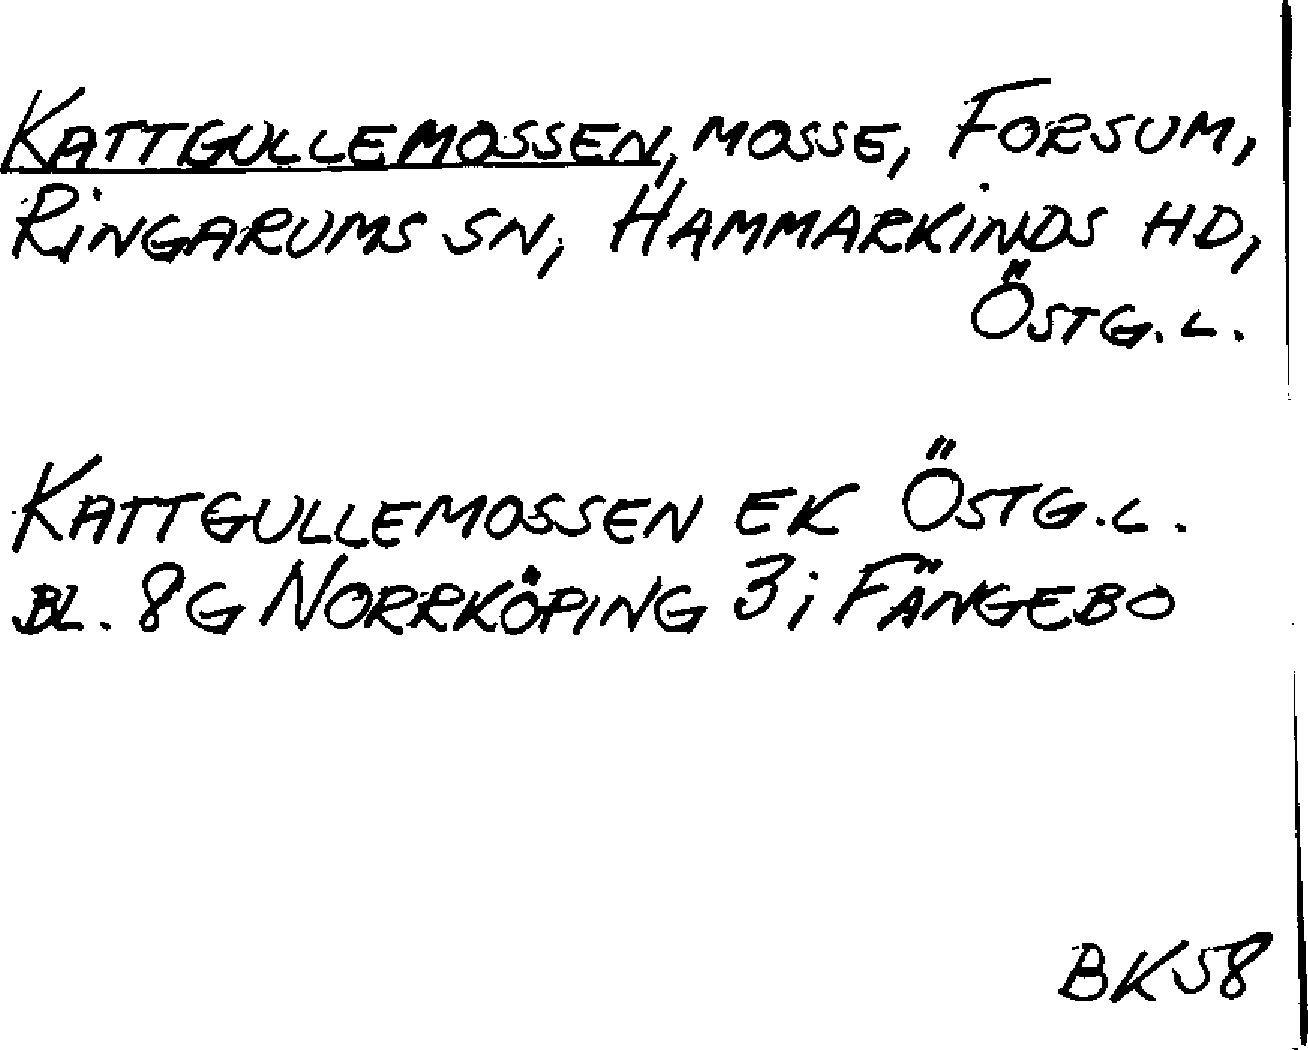 KATTGULLEMOSSEN, MOSSE, FORSUM,
RINGARUMS SN, HAMMARKINDS HD,
ÖSTG.L.
KATTGULLEMOSSEN EK ÖSTG.L.
BL. 8G NORRKÖPING 3i FÄNGEBO
BK58